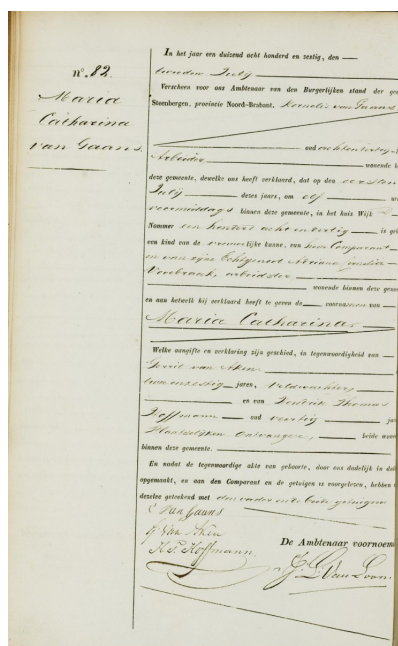 N.º 82.
Maria
Catharina
van Gaans
In het jaar een duizend acht honderd en zestig, den
tweeden Julij
Verscheen voor ons Ambtenaar van den Burgerlijken stand der
Steenbergen, provincie Noord-Brabant, Kornelis van Gaans
oud achtentertig
Arbeider wonende
deze gemeente, dewelke ons heeft verklaard, dat op den eersten
Julij dezes jaars, om elf
voormiddags binnen deze gemeente, in het huis Wijk
Nommer een honderd acht en dertig is
een kind van de vrouwelijke kunne, van hem Comparant
en van zijne Echtgenoot Adriana
arbeidster
wonende binnen deze
en aan hetwelk hij verklaard heeft te geven de voornamen van
Maria Catharina
Welke aangifte en verklaring zijn geschied, in tegenwoordigheid van
Gerrit van Aken
jaren, Veldwachter,
en van Hendrik Thomas
Hoffmann oud veertig
Plaatselijken Ontvanger, beide
binnen deze gemeente.
En nadat de tegenwoordige akte van geboorte, door ons dadelijk in
opgemaakt, en aan den Comparant en de getuigen is voorgelezen, hebben
dezelve geteekend met den vader en de beide getuigen
C Van Gaans
G Van Aken
H. T. Hoffmann.
De Ambtenaar voornoemd
Van Loon